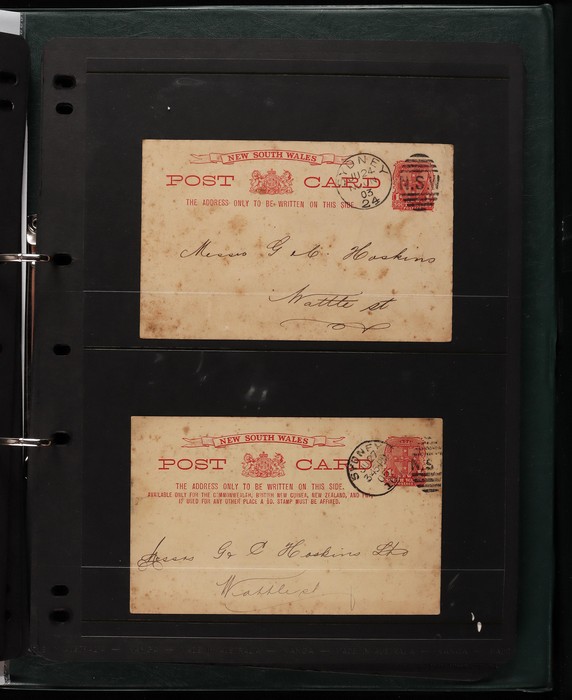 NEW SOUTH WALES
POST CARD
THE ADDRESS ONLY TO BE WRITTEN ON THIS SIDE
SYDNEY
JU 24
03
24
N.S.W
Messrs G & C Hoskins
Wattle st
NEW SOUTH WALES
POST CARD
THE ADDRESS ONLY TO BE WRITTEN ON THIS SIDE.
AVAILABLE ONLY FOR THE COMMONWEALTH, BRITISH NEW GUINEA, NEW ZEALAND, AND
IF USED FOR ANY OTHER PLACE A ½D. STAMP MUST BE AFFIXED.
SYDNEY
N.S.
Messrs G & C Hoskins Ltd
Wattle st